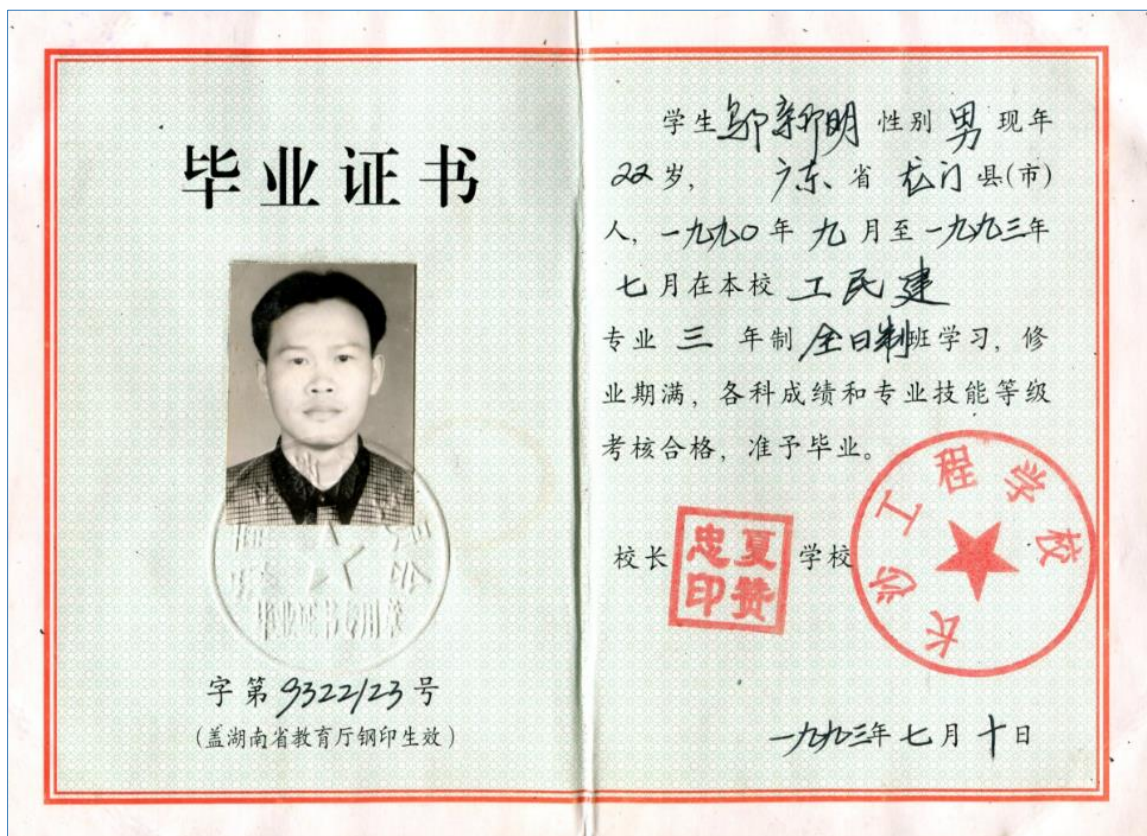 毕业证书
毕业证书专用章
字第9322123号
(盖湖南省教育厅钢印生效)
学生邬新明 性别 男 现年
22岁， 广东 省 龙门 县(市)
人，一九九〇年 九 月至一九九三年
七月在本校 工民建
专业 三 年制 全日制班学习，修
业期满，各科成绩和专业技能等级
考核合格，准予毕业。
校长
夏赞
忠印
学校
长沙工程学校
一九九三年 七 月 十 日